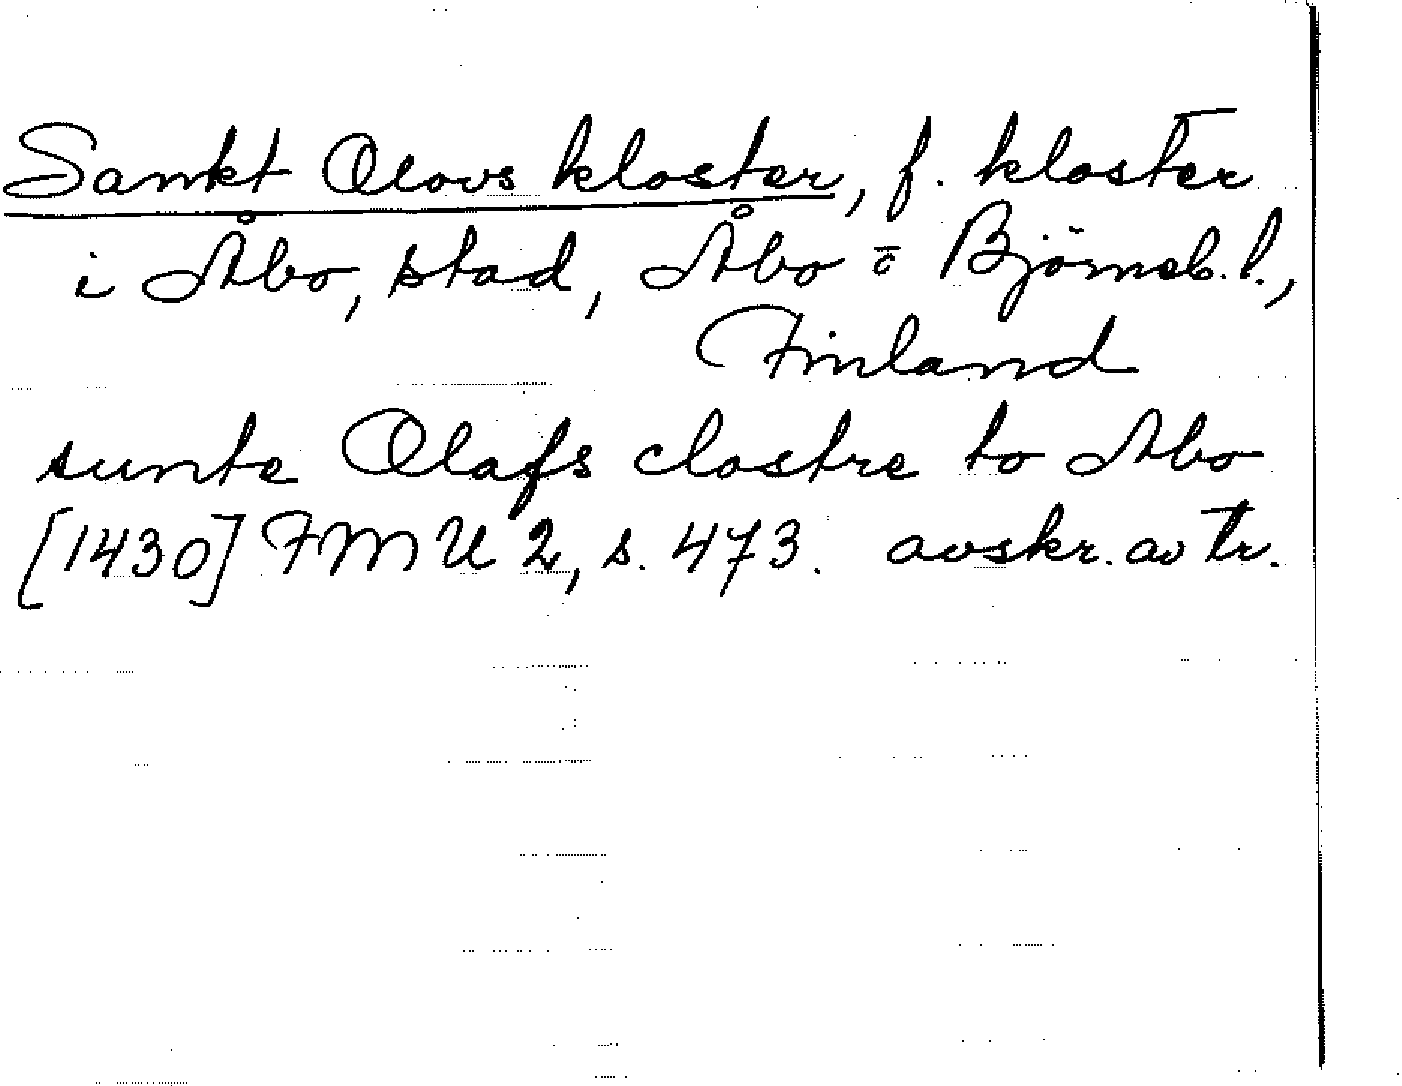 Sankt Olovs kloster, f. kloster
i Åbo, stad, Åbo o Björneb. l.,
Finland
sunte Olafs clostre to Abo
[1430] FMU 2, s. 473. avskr. av tr.